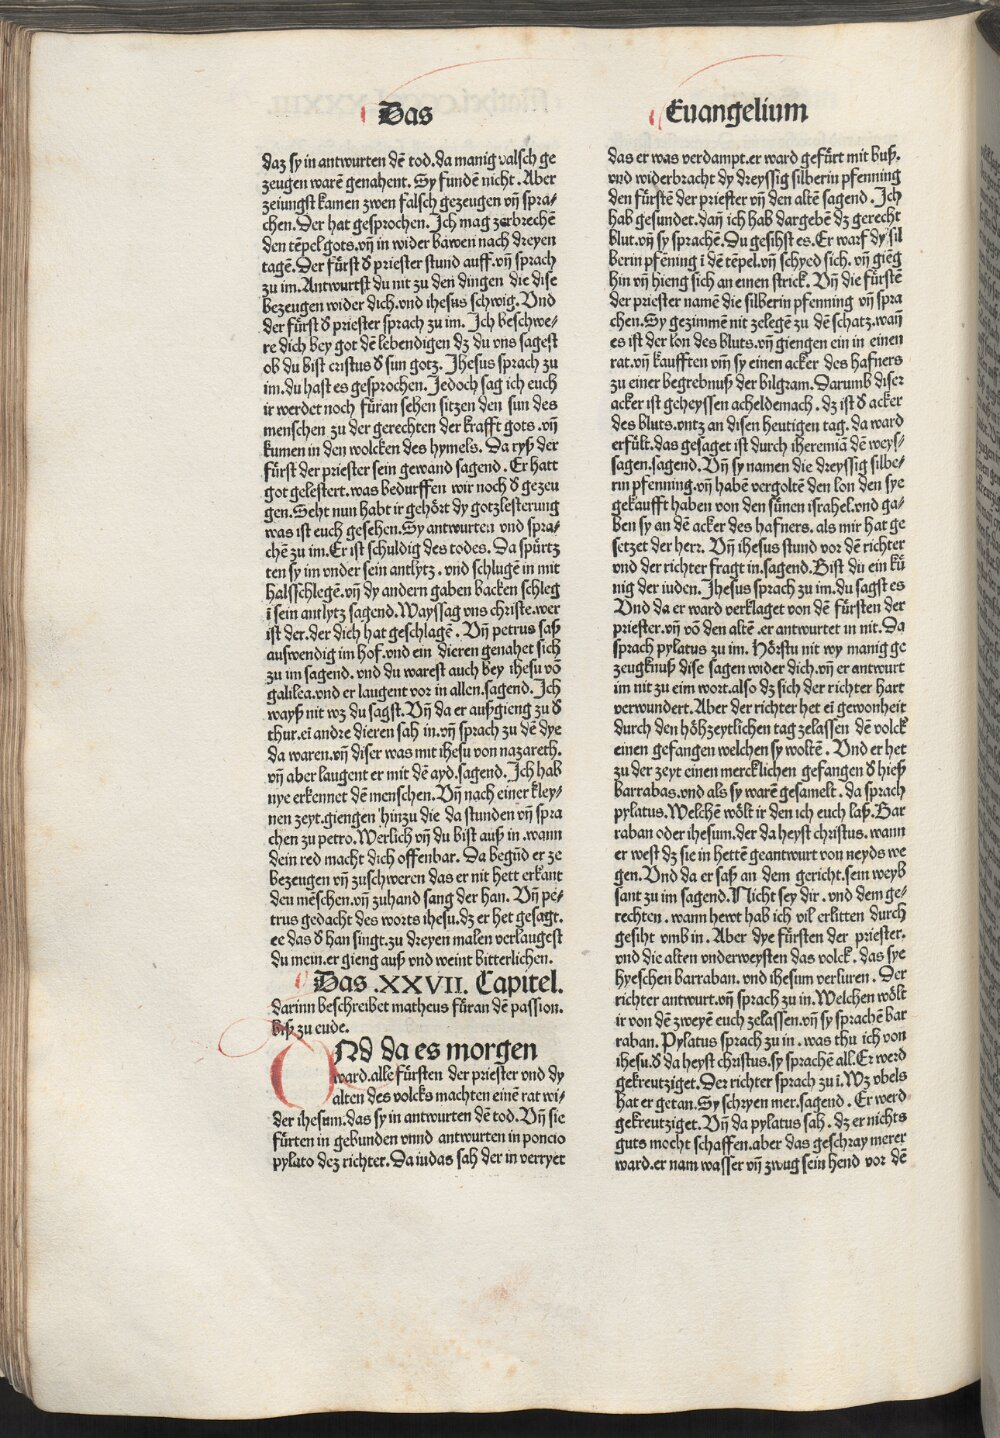 Das
Euangelium
daz sy in antwurten dē tod.da manig valsch ge
zeugen warē genahent. Sy fundē nicht. Aber
zeiungst kamen zwen falsch gezeugen vn̄ spra⸗
chen. Der hat gesprochen. Ich mag zerbrechē
den tēpel gots.vn̄ in wider bawen nach dreyen
tagē. Der fürst d̕ priester stund auff.vn̄ sprach
zu im. Antwurtst du nit zu den dingen die dise
bezeugen wider dich.vnd ihesus schwig. Vnd
der fürst d̕ priester sprach zu im. Ich beschwe⸗
re dich bey got dē lebendigen dz du vns sagest
ob du bist cristus d̕ sun gotz. Ihesus sprach zu
im.du hast es gesprochen. Jedoch sag ich euch
ir werdet noch füran sehen sitzen den sun des
menschen zu der gerechten der krafft gots.vn̄
kumen in den wolcken des hymels. Da ryß der
fürst der priester sein gewand sagend. Er hatt
got gelestert.was bedurffen wir noch d̕ gezeu
gen. Seht nun habt ir gehört dy gotzlesterung
was ist euch gesehen. Sy antwurten vnd spra⸗
chē zu im. Er ist schuldig des todes. Da spürtz
ten sy im vnder sein antlytz. vnd schlugē in mit
halsschlegē.vn̄ dy andern gaben backen schleg
ī sein antlytz sagend. Wayssag vns christe.wer
ist der.der dich hat geschlagē. Vn̄ petrus saß
auswendig im hof.vnd ein dieren genahet sich
zu im sagend. vnd du warest auch bey ihesu vō
galilea.vnd er laugent vor in allen.sagend. Ich
wayß nit wz du sagst. Vn̄ da er außgieng zu d̕
thur.eī andre dieren sah in.vn̄ sprach zu dē dye
da waren.vn̄ diser was mit ihesu von nazareth.
vn̄ aber laugent er mit dē ayd.sagend. Ich hab
nye erkennet dē menschen. Vn̄ nach einer kley⸗
nen zeyt.giengen hinzu die da stunden vn̄ spra
chen zu petro. Werlich vn̄ du bist auß in.wann
dein red macht dich offenbar. Da begūd er ze
bezeugen vn̄ zuschweren das er nit hett erkant
den mēschen.vn̄ zuhand sang der han. Vn̄ pe⸗
trus gedacht des worts ihesu.dz er het gesagt.
ee das d̕ han singt.zu dreyen malen verlaugest
du mein.er gieng auß vnd weint bitterlichen.
Das .XXVII. Capitel.
darinn beschreibet matheus füran dē passion.
biß zu ende.
Nd da es morgen
ward.alle fürsten der priester vnd dy
alten des volcks machten einē rat wi⸗
der ihesum.das sy in antwurten dē tod. Vn̄ sie
fürten in gebunden vnnd antwurten in poncio
pylato dez richter. Da iudas sah der in verryet
das er was verdampt.er ward gefürt mit buß.
vnd widerbracht dy dreyssig silberin pfenning
den fürstē der priester vn̄ den altē sagend. Ich
hab gesundet.dan̄ ich hab dargebē dz gerecht
blut.vn̄ sy sprachē. Du gesihst es. Er warf dy sil
berin pfenning ī dē tēpel.vn̄ schyed sich. vn̄ giēg
hin vn̄ hieng sich an einen strick. Vn̄ die fürstē
der priester namē die silberin pfenning vn̄ spra
chen. Sy gezimmē nit zelegē zu dē schatz.wan̄
es ist der lon des bluts.vn̄ giengen ein in einen
rat.vn̄ kaufften vm̄ sy einen acker des hafners
zu einer begrebnuß der bilgram. Darumb diser
acker ist geheyssen acheldemach. dz ist d̕ acker
des bluts.vntz an disen heutigen tag. da ward
erfült.das gesaget ist durch iheremiā dē weys⸗
sagen.sagend. Vn̄ sy namen die dreyssig silbe⸗
rin pfenning.vn̄ habē vergoltē den lon den sye
gekaufft haben von den sünen israhel.vnd ga⸗
ben sy an dē acker des hafners. als mir hat ge
setzet der herr. Vn̄ ihesus stund vor dē richter
vnd der richter fragt in.sagend. Bist du ein kü
nig der iuden. Ihesus sprach zu im.du sagst es
Vnd da er ward verklaget von dē fürsten der
priester.vn̄ vō den altē.er antwurtet in nit. Da
sprach pylatus zu im. Hörstu nit wy manig ge
zeugknuß dise sagen wider dich.vn̄ er antwurt
im nit zu eim wort.also dz sich der richter hart
verwundert. Aber der richter het eī gewonheit
durch den höhzeytlichen tag zelassen dē volck
einen gefangen welchen sy woltē. Vnd er het
zu der zeyt einen mercklichen gefangen d̕ hieß
barrabas.vnd als sy warē gesamelt. da sprach
pylatus. Welchē wölt ir den ich euch laß. Bar
raban oder ihesum.der da heyst christus. wann
er west dz sie in hettē geantwurt von neyds we
gen. Vnd da er saß an dem gericht.sein weyb
sant zu im sagend. Nicht sey dir. vnd dem ge⸗
rechten. wann hewt hab ich vil erlitten durch
gesiht vmb in. Aber dye fürsten der priester.
vnd die alten vnderweysten das volck. das sye
hyeschen barraban. vnd ihesum verluren. Der
richter antwurt.vn̄ sprach zu in. Welchen wölt
ir von dē zweyē euch zelassen.vn̄ sy sprachē bar
raban. Pylatus sprach zu in. was thu ich von
ihesu.d̕ da heyst christus.sy sprachē all. Er werd
gekreutziget. Der richter sprach zu ī. Wz vbels
hat er getan. Sy schryen mer.sagend. Er werd
gekreutziget. Vn̄ da pylatus sah. dz er nichts
guts mocht schaffen.aber das geschray merer
ward.er nam wasser vn̄ zwug sein hend vor dē